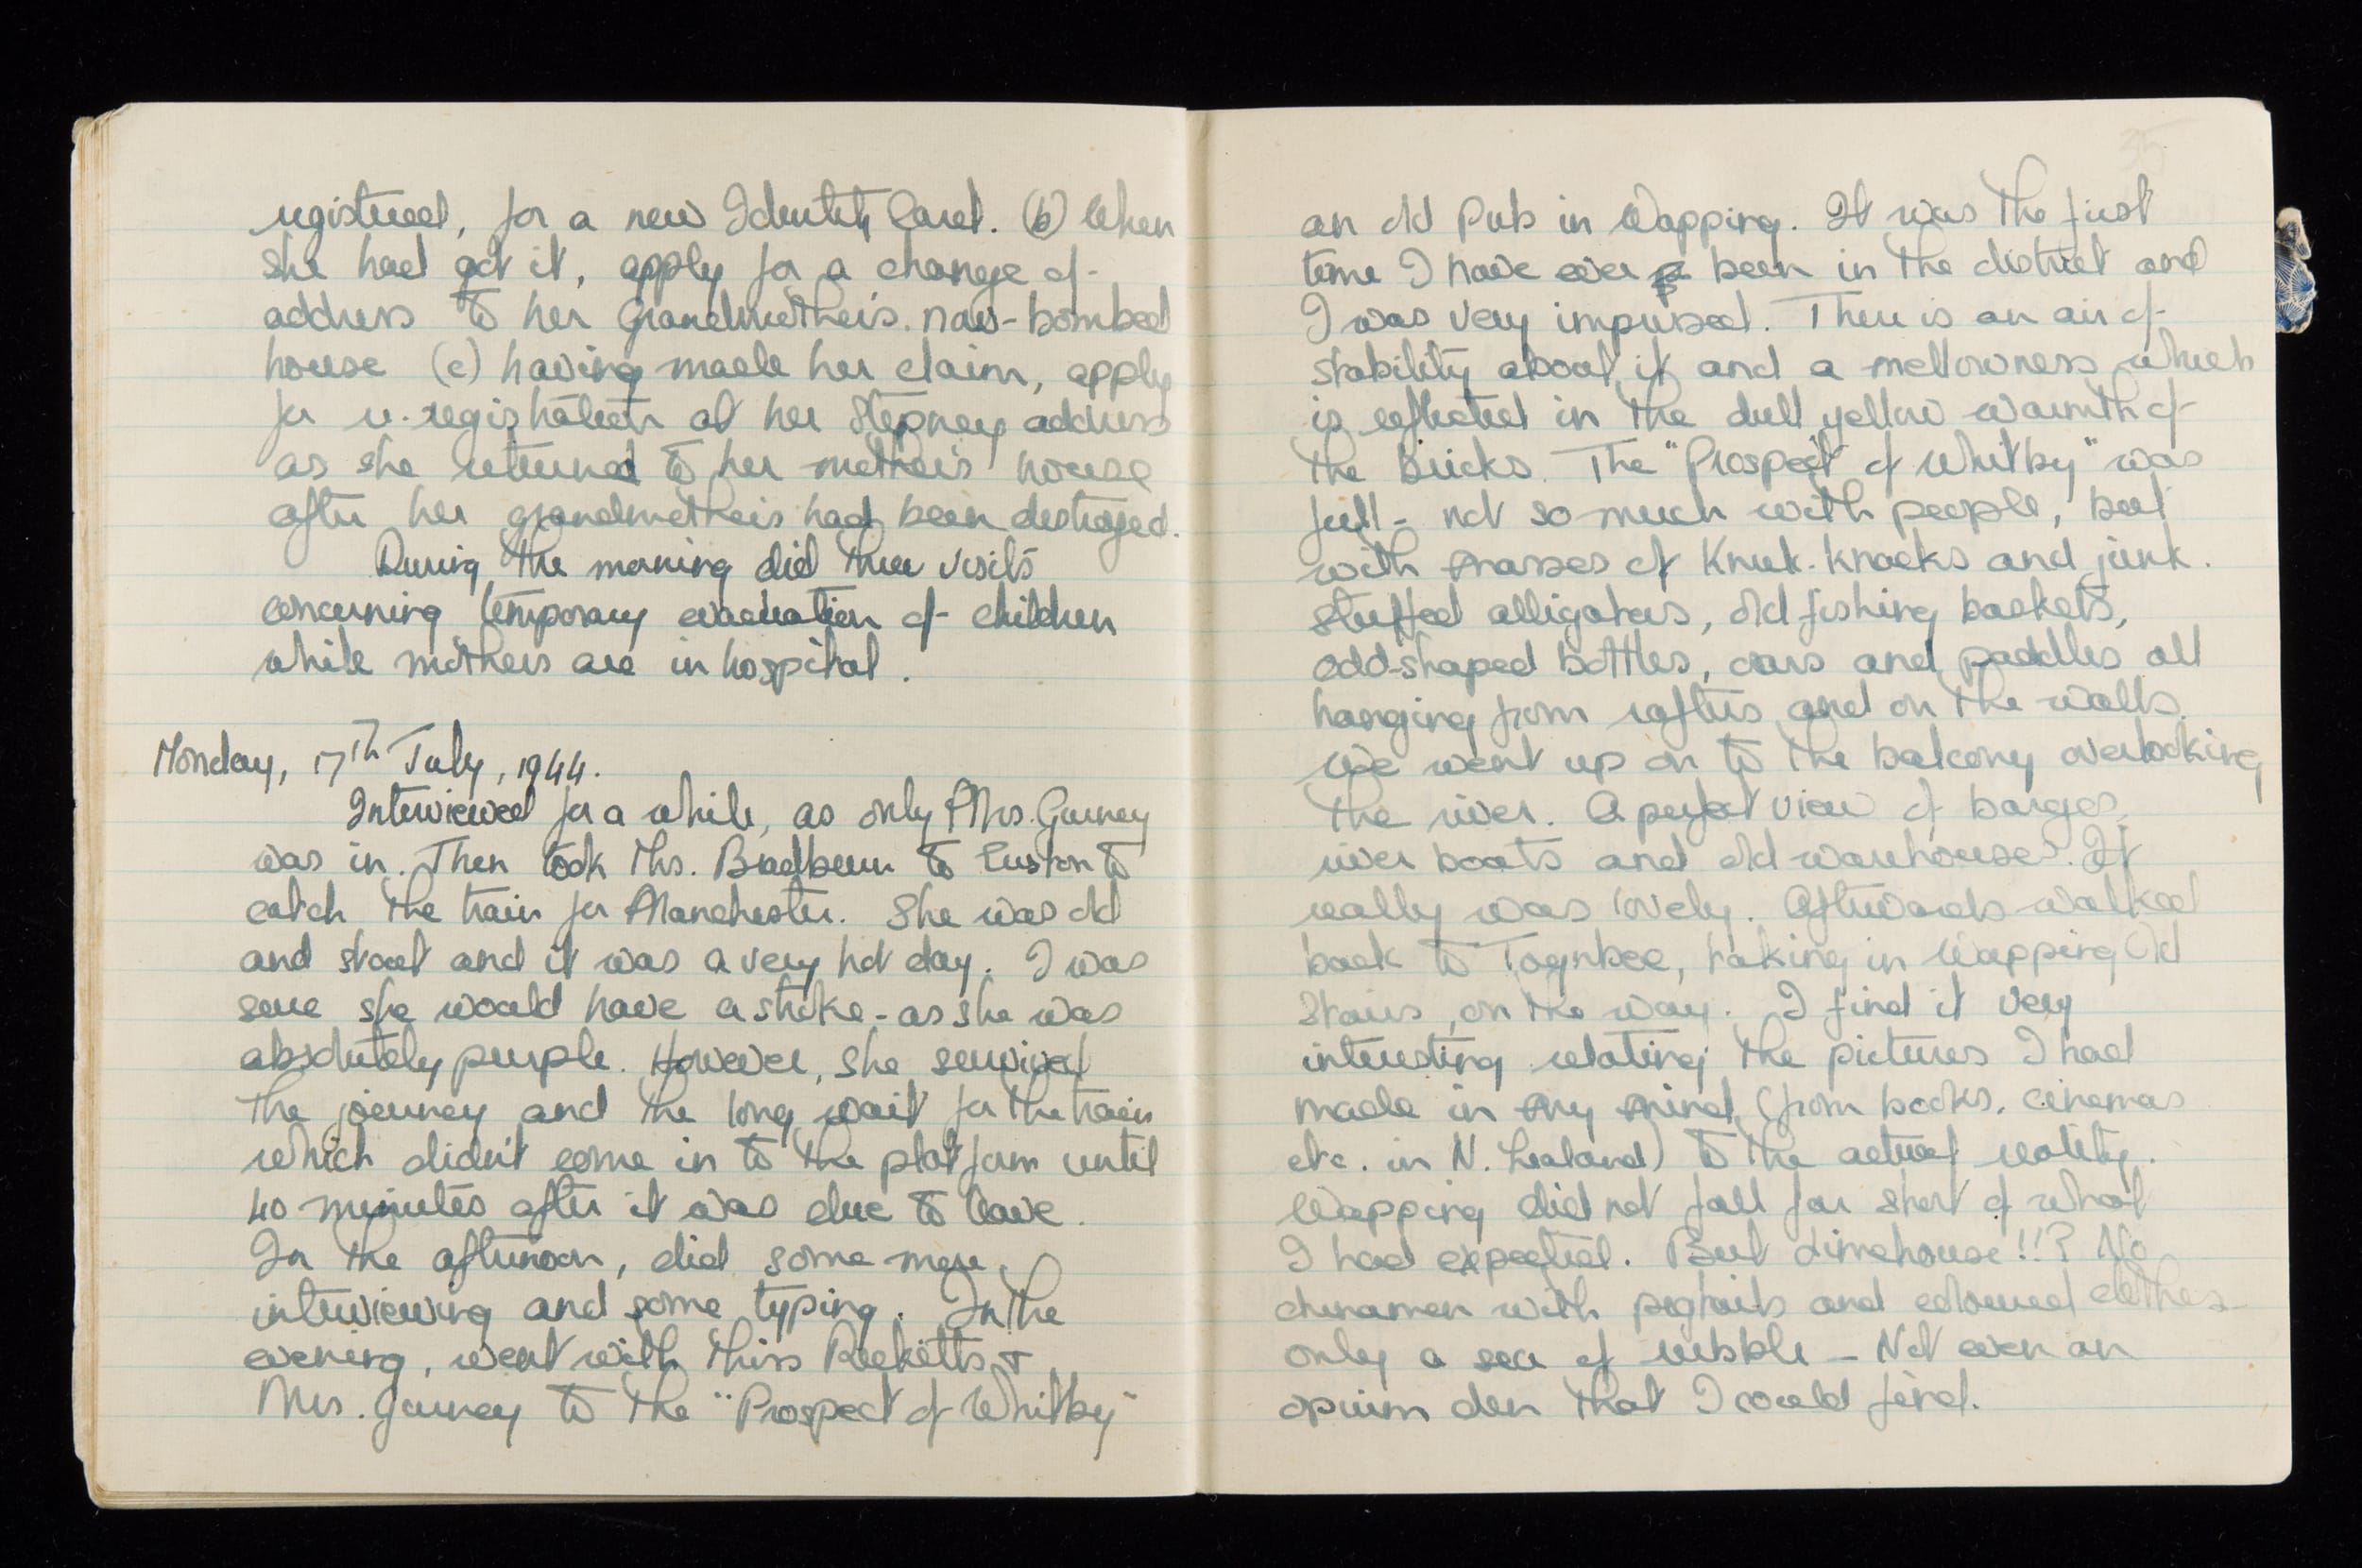 registered, for a new Identity Card. (b) When
she had got it, apply for a change of
address to her grandmother's now-bombed
house (c) having made her claim, apply
for re-registration at her Stepney address
as she returned to her mother's house
after her grandmother's had been destroyed.
During the morning did three visits
concerning temporary evacuation of children
while mothers are in hospital.
Monday, 17th July, 1944.
Interviewed for a while, as only Mrs. Gurney
was in. Then took Mrs. Bradburn to Euston to
catch the train for Manchester. She was old
and stout and it was a very hot day. I was
sure she would have a stroke - as she was
absolutely purple. However, she survived
the journey and the long wait for the train
which didn't come in to the platform until
40 minutes after it was due to leave.
In the afternoon, did some more
interviewing and some typing. In the
evening, went with Miss Ricketts &
Mrs. Gurney to the "Prospect of Whitby"
35
an old Pub in Wapping. It was the first
time I have ever been in the district and
I was very impressed. There is an air of
stability about it and a mellowness which
is reflected in the dull yellow warmth of
the bricks. The "Prospect of Whitby" was
full - not so much with people, but
with masses of Knick-knacks and junk.
Stuffed alligators, old fishing baskets,
odd-shaped bottles, oars and paddles all
hanging from rafters and on the walls.
We went up on to the balcony overlooking
the river. A perfect view of barges,
river boats and old warehouses. It
really was lovely. Afterwards walked
back to Toynbee, taking in Wapping Old
Stairs, on the way. I find it very
interesting relating the pictures I had
made in my mind (from books, cinemas
etc. in N. Zealand) to the actual reality.
Wapping did not fall far short of what
I had expected. But Limehouse!!? No
chinamen with pigtails and coloured clothes -
only a sea of rubble - Not even an
opium den that I could find.